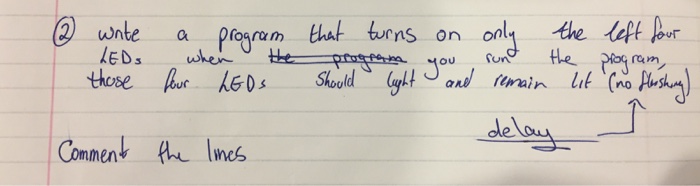 ② write a program that turns on only the left four
LEDs when the program you run the program,
those four LEDs should light and remain lit (no flashing)
delay
Comment the lines